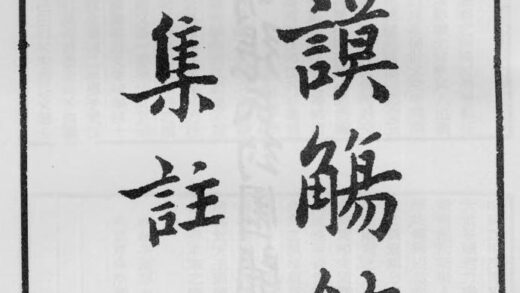 謨觴
集註